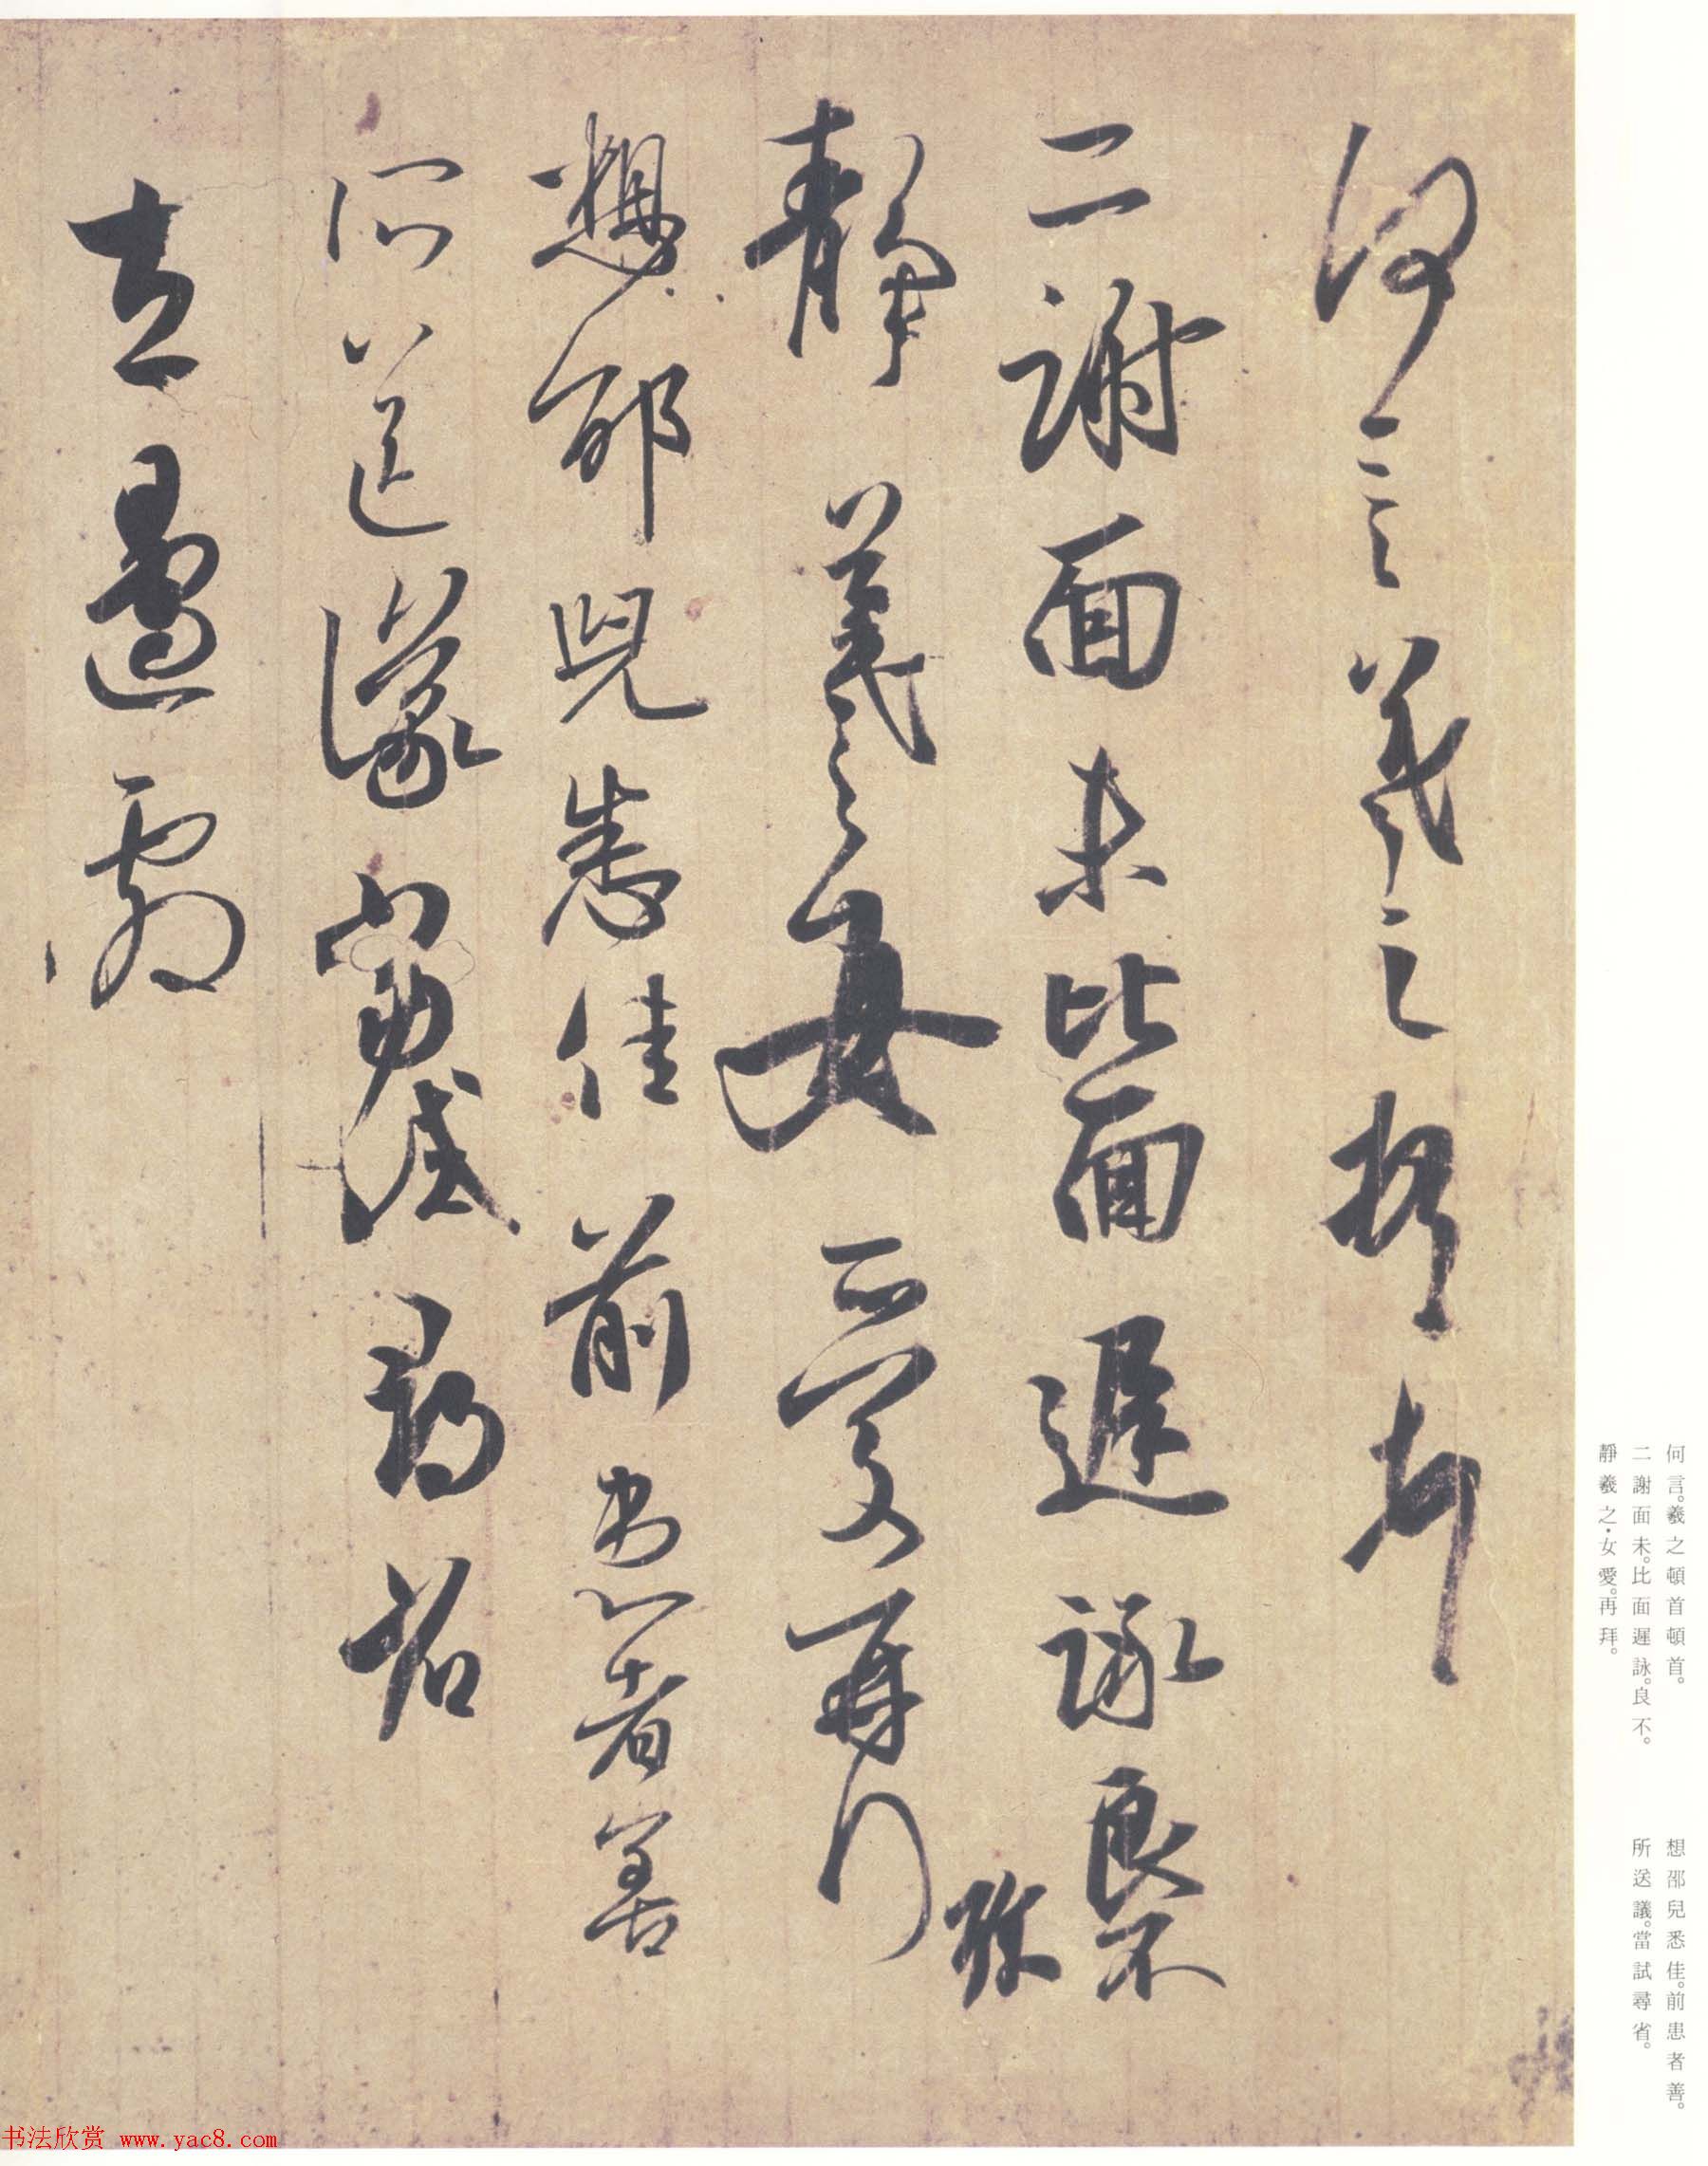 何言羲之頓首頓首
二謝面未比面遲詠良不
珍
靜羲之女愛再拜
想邵兒悉佳前患者善
所送議當試尋省
左邊劇
何言。羲之頓首頓首。
二謝面未。比面遲詠。良不。
靜羲之・女愛。再拜。
想邵兒悉佳。前患者善。
所送議。當試尋省。
书法欣赏 www.yac8.com